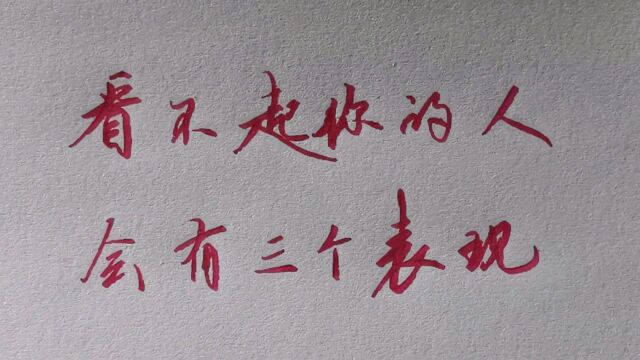 看不起你的人
会有三个表现